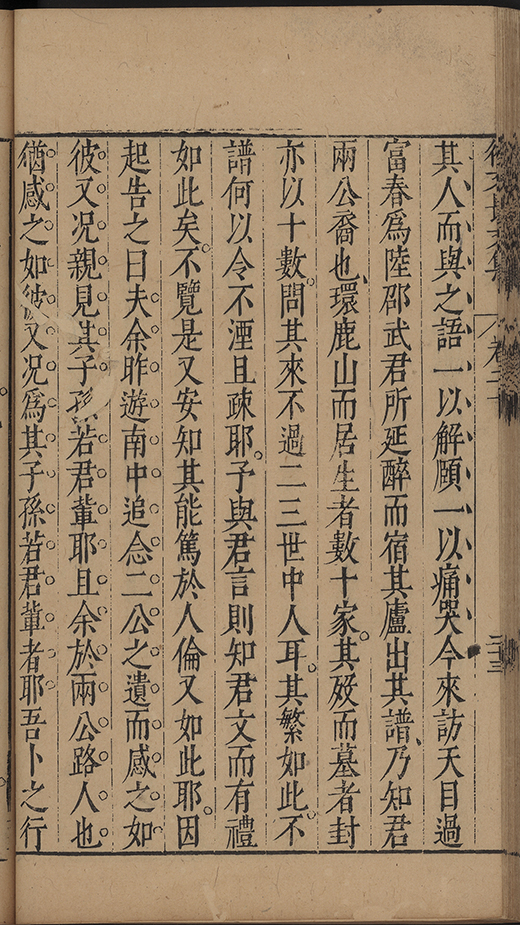 徐文長文集 卷二十 二十三
其人而與之語一以解頤一以痛哭今來訪天目過
富春爲陸邵武君所延醉而宿其廬出其譜乃知君
兩公裔也環鹿山而居生者數十家其歿而墓者封
亦以十數問其來不過二三世中人耳其繁如此不
譜何以令不湮且疎耶予與君言則知君文而有禮
如此矣不覽是又安知其能篤於人倫又如此耶因
起告之曰夫余昨遊南中追念二公之遺而感之如
彼又况親見其子孫若君輩耶且余於兩公路人也
猶感之如彼又况爲其子孫若君輩者耶吾卜之行